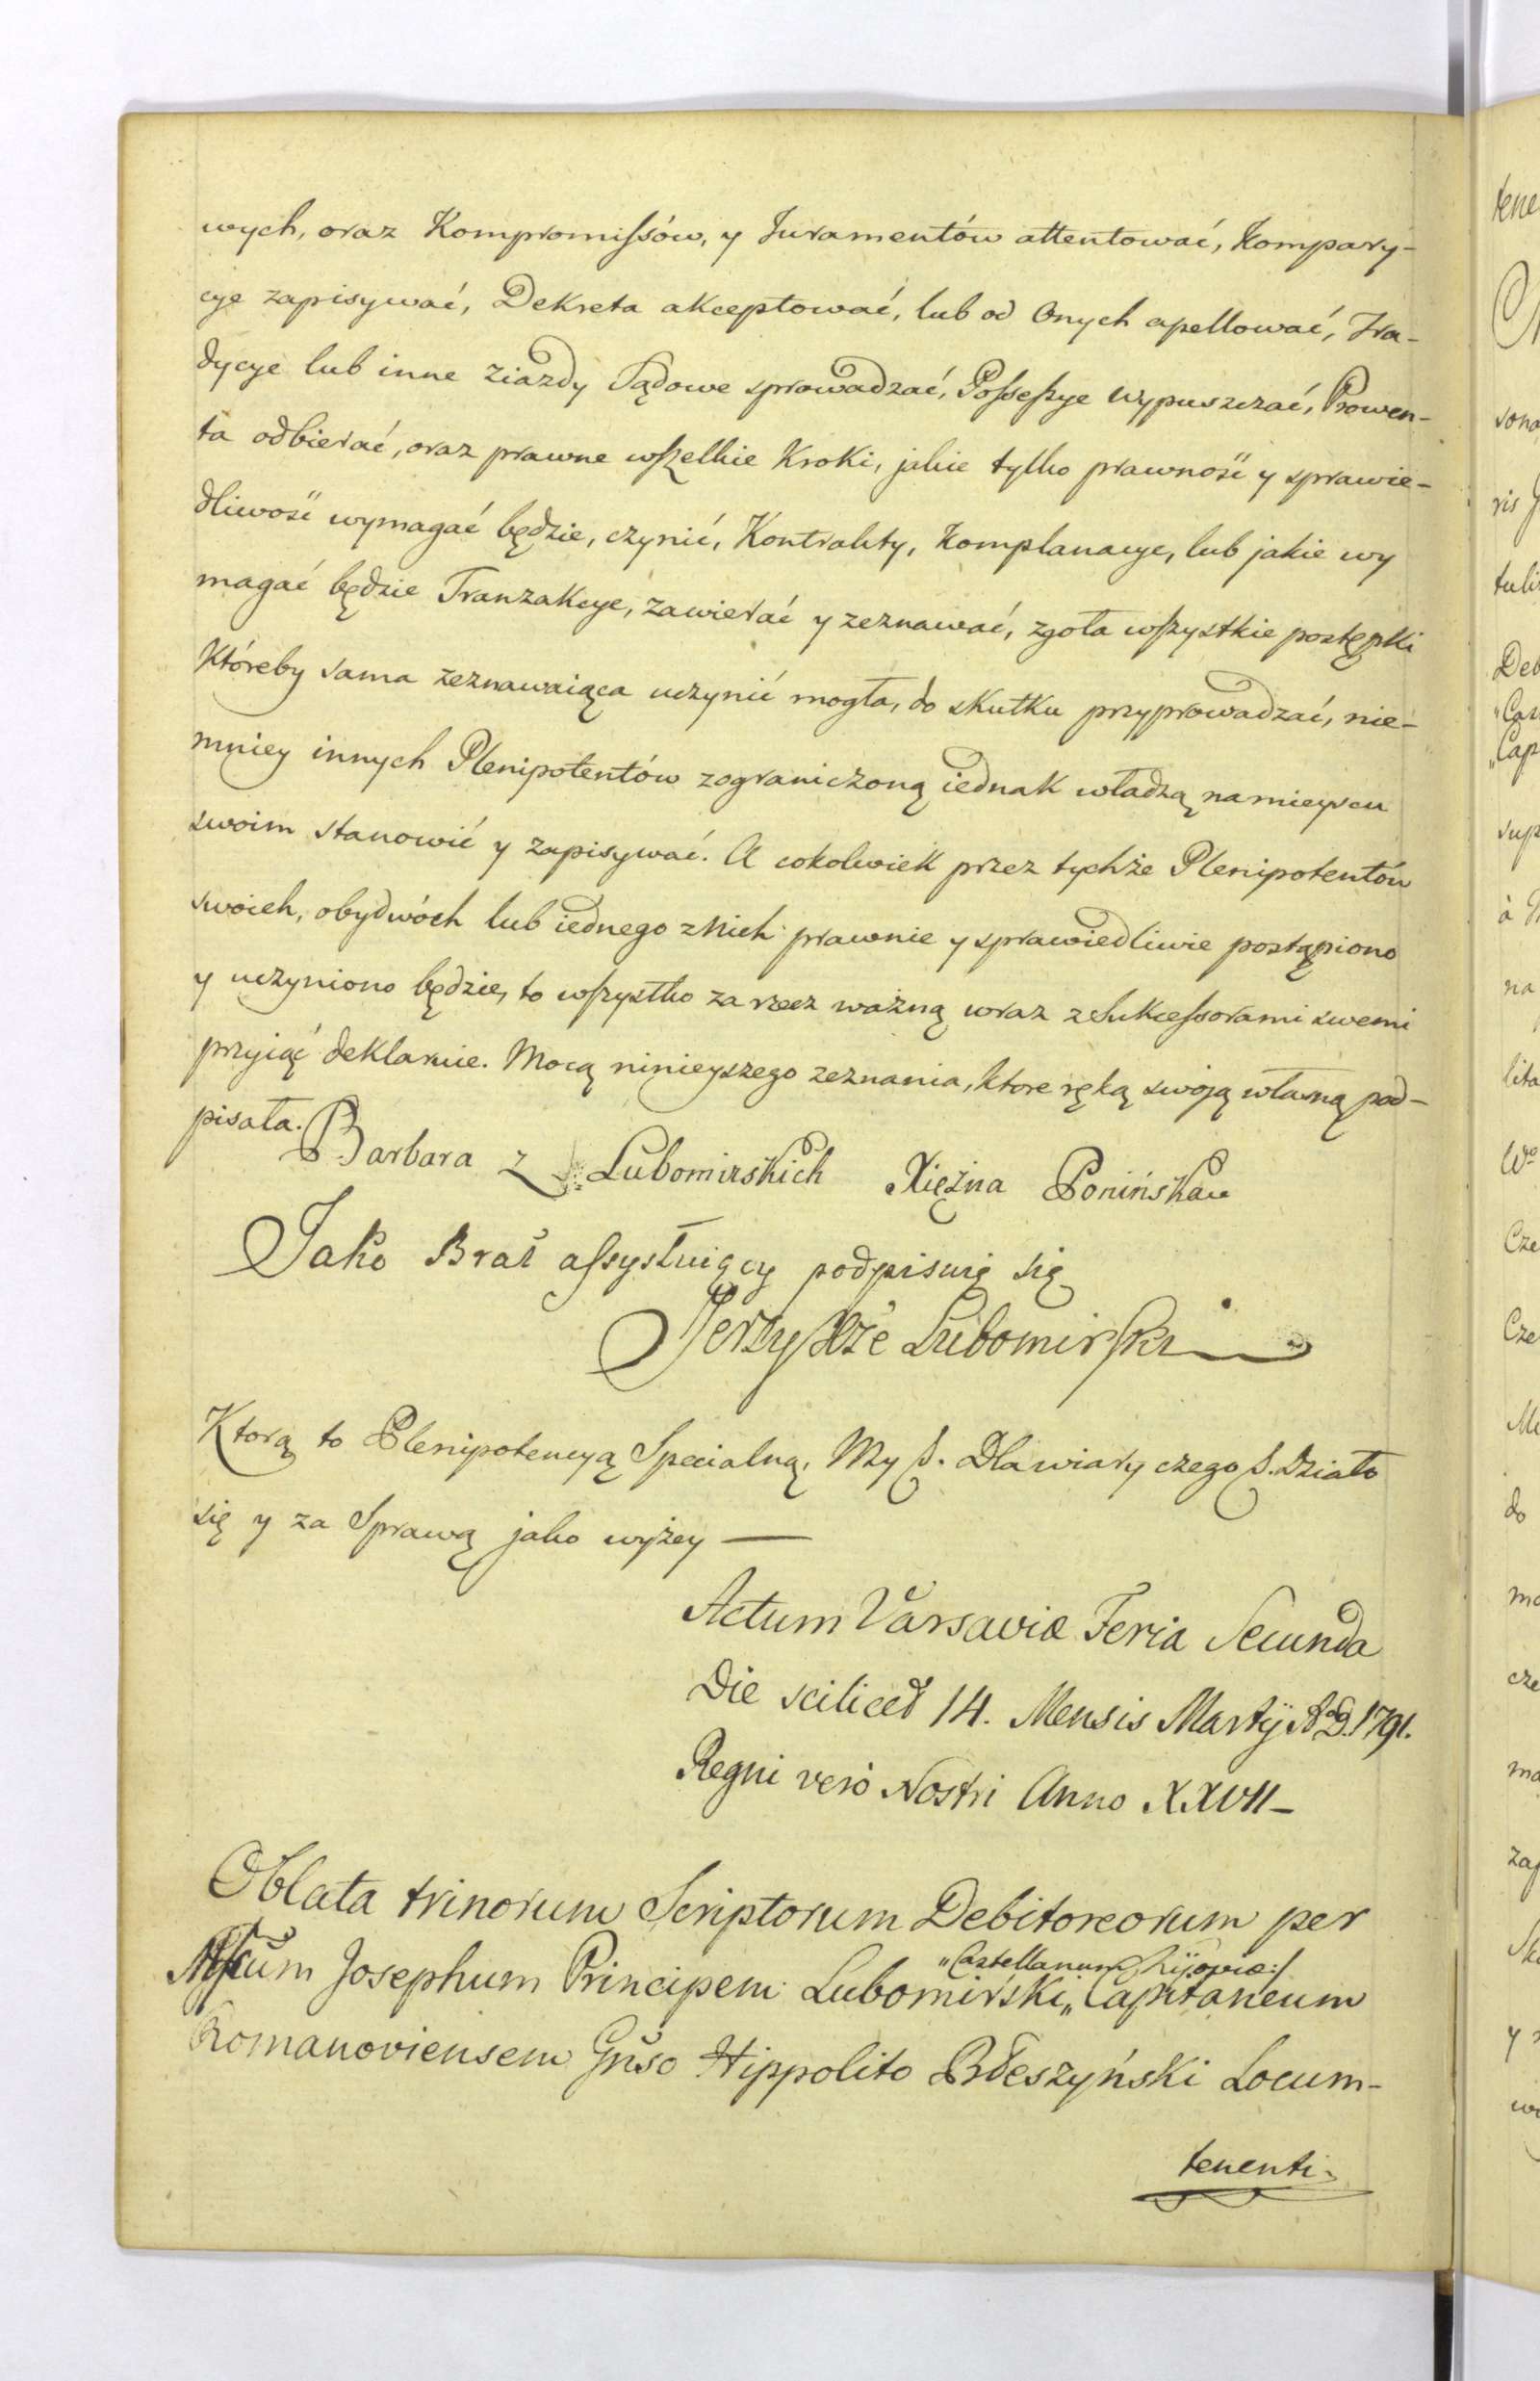 wych, oraz Kompromissów, y Juramentów attentować, Kompary-
cye zapisywać, Dekreta akceptować, lub od Onych apellować, Tra-
dycye lub inne Ziazdy Sądowe sprowadzać, Possessye wypuszczać, Prowen-
ta odbierać, oraz prawne wszelkie Kroki, jakie tylko prawność y sprawie-
dliwość wymagać będzie, czynić, Kontrakty, Komplanacye, lub jakie wy
magać będzie Tranzakcye, zawierać y zeznawać, zgoła wszystkie postępki
Któreby sama zeznawaiąca uczynić mogła, do skutku przyprowadzać, nie-
mniey innych Plenipotentów zograniczoną iednak władzą namieyscu
swoim stanowić y zapisywać. A cokolwiek przez tychże Plenipotentów
swoich, obydwóch lub iednego z Nich prawnie y sprawiedliwie postąpiono
y uczyniono będzie, to wszystko za rzecz ważną wraz z Sukcessorami swemi
przyiąć deklaruie. Mocą ninieyszego zeznania, ktore ręką swoją własną pod-
pisała.
Barbara z Lubomirskich Xiężna Ponińska
Jako Brat assystuiący podpisuię się
Jerzy Xże Lubomirski
Ktorą to Plenipotencyą Specialną, My S. Dla wiary czego S. Działo
się y za Sprawą jako wyżey —
Actum Varsaviæ Feria Secunda
Die scilicet 14. Mensis Martij A.D. 1791.
Regni verò Nostri Anno XXVII –
Oblata trinorum Scriptorum Debitoreorum per
"Castellanum Kijoviæ:/
Josephum Principem Lubomirski „ Capitaneum
Romanoviensem Gnso Hippolito Błeszyński Locum-
tenenti